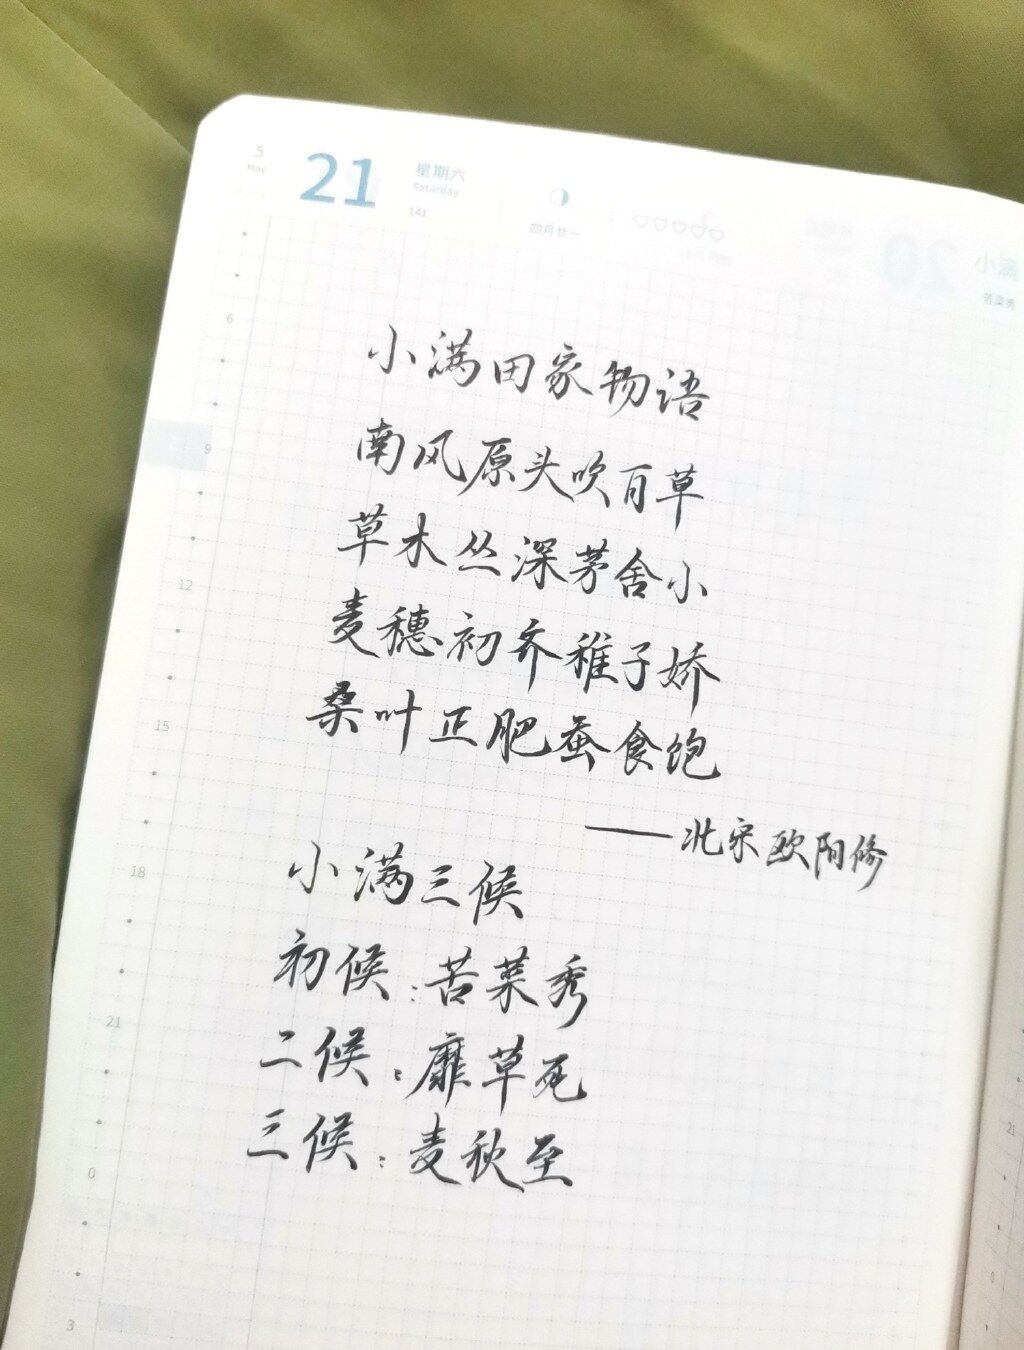 5
May
21
星期六
Saturday
141
四月廿一
小满
20
6
9
12
15
18
21
0
3
小满田家物语
南风原头吹百草
草木丛深茅舍小
麦穗初齐稚子娇
桑叶正肥蚕食饱
——北宋欧阳修
小满三候
初候：苦菜秀
二候：靡草死
三候：麦秋至
21
0